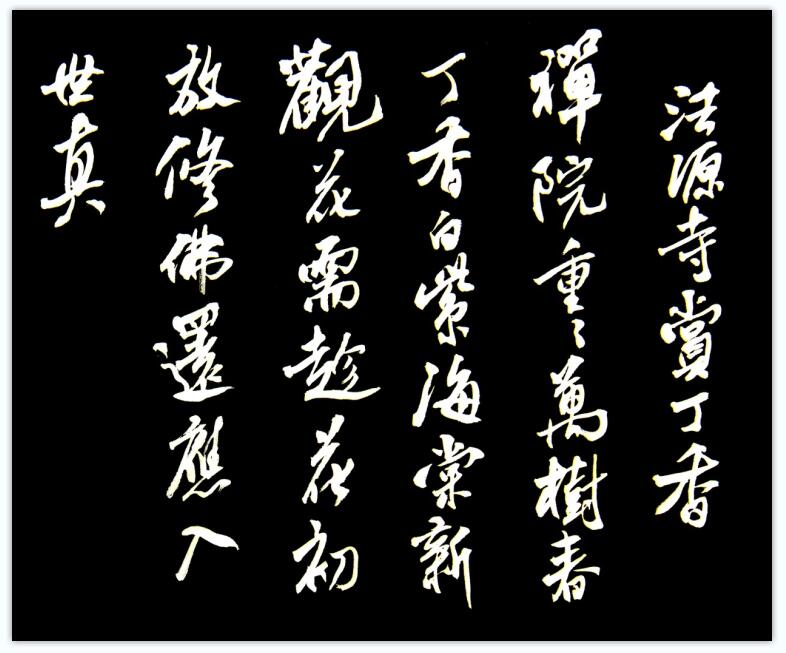 法源寺賞丁香
禪院重重萬樹春
丁香白紫海棠新
觀花需趁花初
放修佛還應入
世真